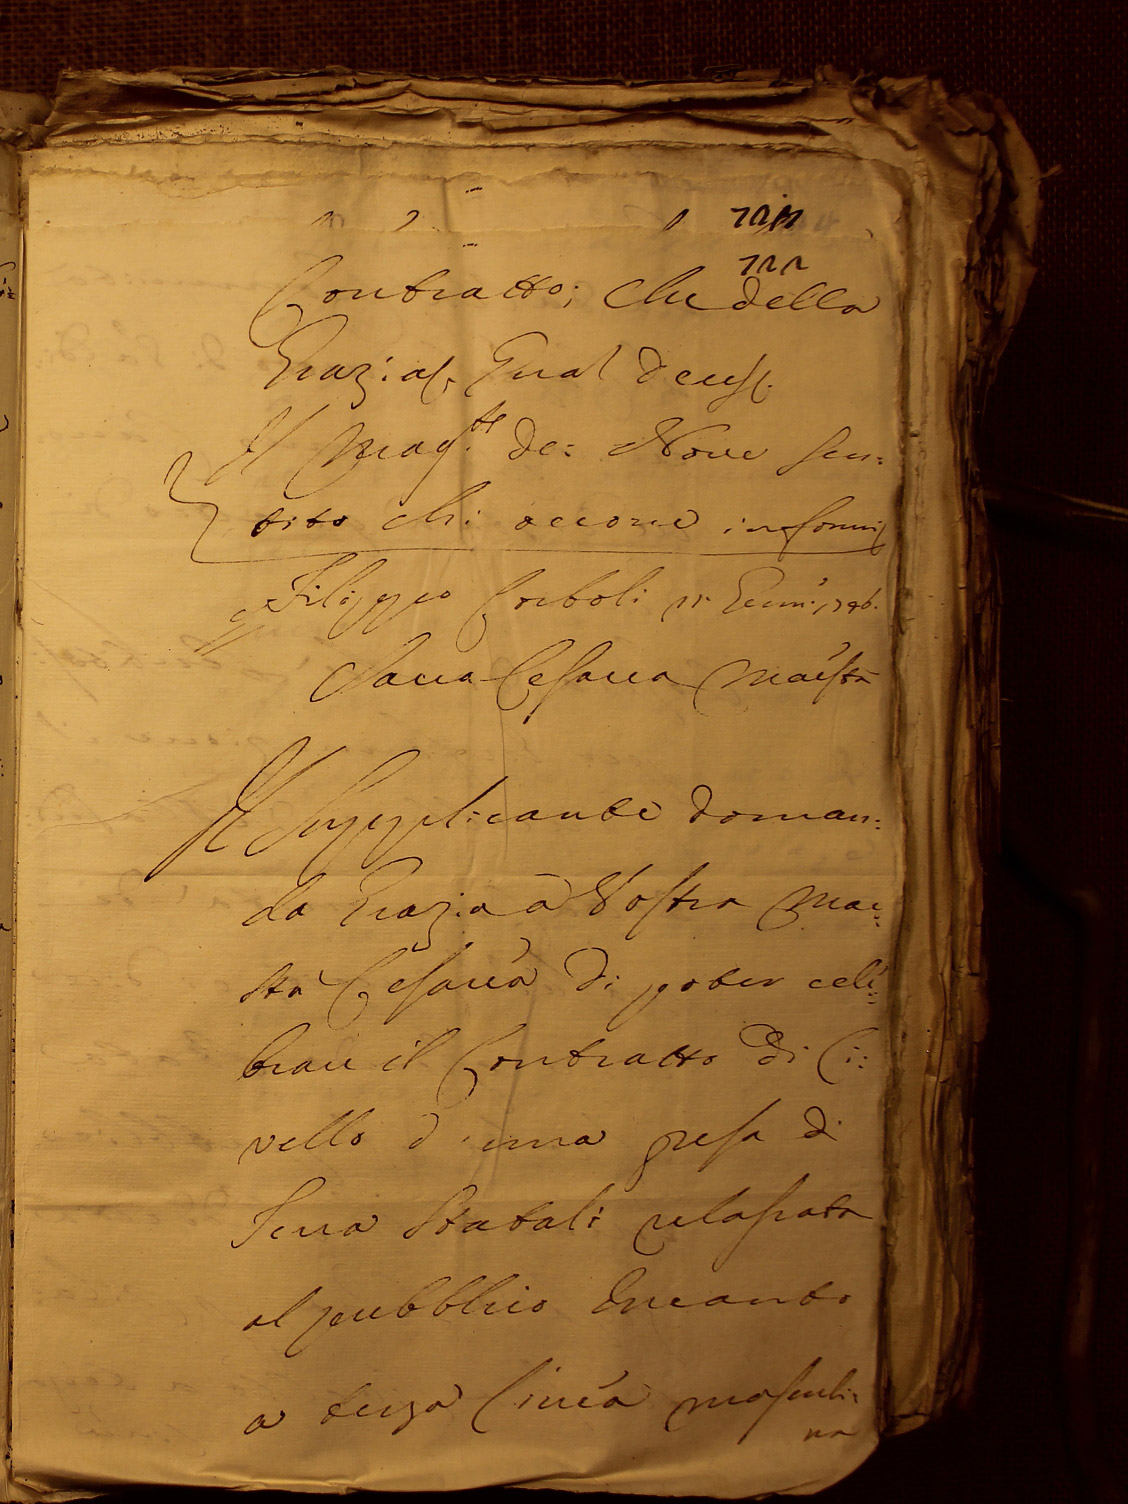 Contratto; che della
Grazia
Il Mag.te de: Nove sen:
tito chi occorre informi
Filippo Corboli
Sacra Cesarea Maestà
Il Supplicante doman:
da Grazia à Vostra Mae:
stà Cesarea di poter cele:
brare il Contratto di Li:
vello d'una presa di
Terra statali rilasciata
al pubblico Incanto
a terza linea masculi:
na